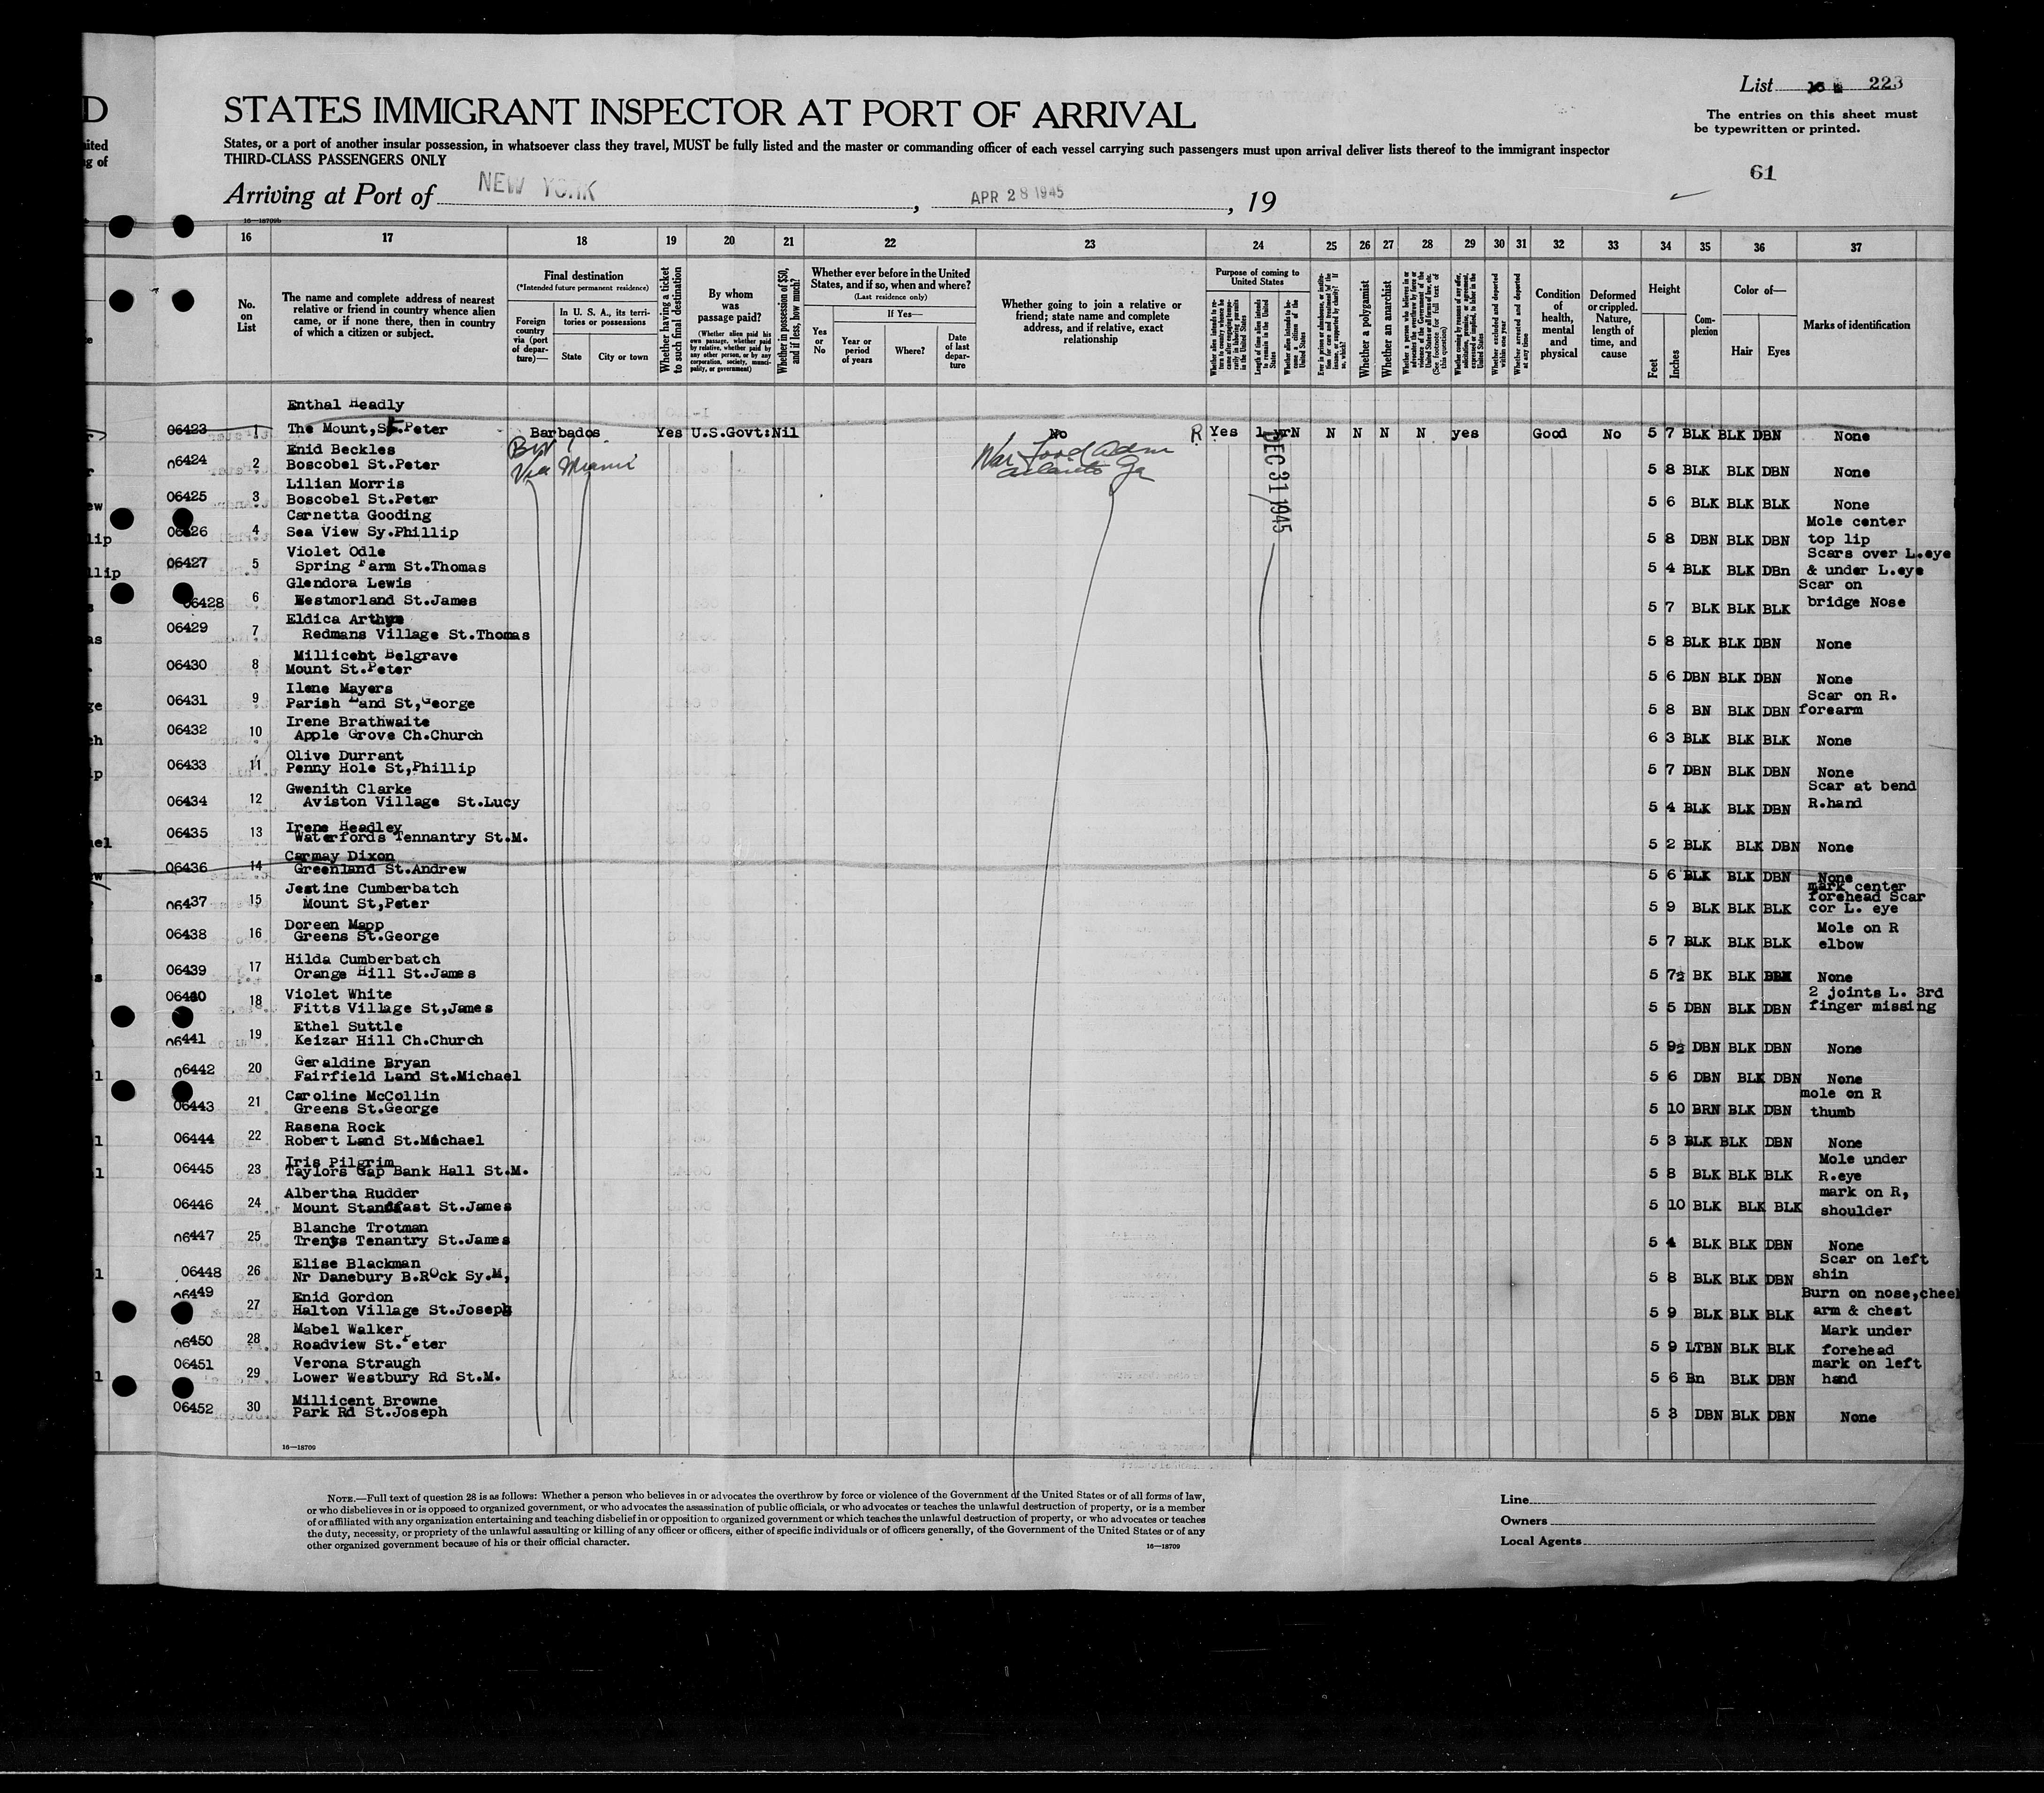 List 223
STATES IMMIGRANT INSPECTOR AT PORT OF ARRIVAL
The entries on this sheet must
be typewritten or printed.
States, or a port of another insular possession, in whatsoever class they travel, MUST be fully listed and the master or commanding officer of each vessel carrying such passengers must upon arrival deliver lists thereof to the immigrant inspector
THIRD-CLASS PASSENGERS ONLY
61
Arriving at Port of NEW YORK, APR 28 1945, 19
16—18709b
16 17 18 19 20 21 22 23 24 25 26 27 28 29 30 31 32 33 34 35 36 37
No. on List
The name and complete address of nearest
relative or friend in country whence alien
came, or if none there, then in country
of which a citizen or subject.
Final destination
(*Intended future permanent residence)
Foreign country via (port of departure)—
In U. S. A., its territories or possessions
State
City or town
Whether having a ticket to such final destination
By whom was passage paid?
(Whether alien paid his own passage, whether paid by relative, whether paid by any other person, or by any corporation, society, municipality, or government)
Whether in possession of $50, and if less, how much?
Whether ever before in the United States, and if so, when and where?
(Last residence only)
Yes or No
If Yes—
Year or period of years
Where?
Date of last departure
Whether going to join a relative or
friend; state name and complete
address, and if relative, exact
relationship
Purpose of coming to United States
Whether a polygamist
Whether an anarchist
Whether excluded and deported within one year
Whether arrested and deported at any time
Condition of health, mental and physical
Deformed or crippled. Nature, length of time, and cause
Height
Feet
Inches
Complexion
Color of—
Hair
Eyes
Marks of identification
Enthal Headly
06423 1 The Mount, St.Peter Barbados Yes U.S.Govt: Nil No R Yes 1 yr N N N N N yes Good No 5 7 BLK BLK DBN None
BWI
Via Miami
War Food Adm
Atlanta Ga
DEC 31 1945
Enid Beckles
06424 2 Boscobel St.Peter 5 8 BLK BLK DBN None
Lilian Morris
06425 3 Boscobel St.Peter 5 6 BLK BLK BLK None
Carnetta Gooding Mole center
06426 4 Sea View Sy.Phillip 5 8 DBN BLK DBN top lip
Violet Odle Scars over L.eye
06427 5 Spring Farm St.Thomas 5 4 BLK BLK DBn & under L.eye
Glendora Lewis Scar on
06428 6 Westmorland St.James 5 7 BLK BLK BLK bridge Nose
Eldica Arthur
06429 7 Redmans Village St.Thomas 5 8 BLK BLK DBN None
Millicent Belgrave
06430 8 Mount St.Peter 5 6 DBN BLK DBN None
Ilene Mayers Scar on R.
06431 9 Parish Land St,George 5 8 BN BLK DBN forearm
Irene Brathwaite
06432 10 Apple Grove Ch.Church 6 3 BLK BLK BLK None
Olive Durrant
06433 11 Penny Hole St,Phillip 5 7 DBN BLK DBN None
Gwenith Clarke Scar at bend
06434 12 Aviston Village St.Lucy 5 4 BLK BLK DBN R.hand
Irene Headley
06435 13 Waterfords Tennantry St.M. 5 2 BLK BLK DBN None
Carmay Dixon
06436 14 Greenland St.Andrew 5 6 BLK BLK DBN None
Jestine Cumberbatch mark center
forehead Scar
06437 15 Mount St,Peter 5 9 BLK BLK BLK cor L. eye
Doreen Mapp Mole on R
06438 16 Greens St.George 5 7 BLK BLK BLK elbow
Hilda Cumberbatch
06439 17 Orange Hill St.James 5 7½ BK BLK None
Violet White 2 joints L. 3rd
06440 18 Fitts Village St,James 5 5 DBN BLK DBN finger missing
Ethel Suttle
06441 19 Keizar Hill Ch.Church 5 9½ DBN BLK DBN None
Geraldine Bryan
06442 20 Fairfield Land St.Michael 5 6 DBN BLK DBN None
Caroline McCollin mole on R
06443 21 Greens St.George 5 10 BRN BLK DBN thumb
Rasena Rock
06444 22 Robert Land St.Michael 5 3 BLK BLK DBN None
Iris Pilgrim Mole under
06445 23 Taylors Gap Bank Hall St.M. 5 8 BLK BLK BLK R.eye
Albertha Rudder mark on R,
06446 24 Mount Standfast St.James 5 10 BLK BLK BLK shoulder
Blanche Trotman
06447 25 Trents Tenantry St.James 5 4 BLK BLK DBN None
Elise Blackman Scar on left
06448 26 Nr Danebury B.ROck Sy.M, 5 8 BLK BLK DBN shin
Enid Gordon Burn on nose,cheek
06449 27 Halton Village St.Joseph 5 9 BLK BLK BLK arm & chest
Mabel Walker Mark under
06450 28 Roadview St.Peter 5 9 LTBN BLK BLK forehead
Verona Straugh mark on left
06451 29 Lower Westbury Rd St.M. 5 6 Bn BLK DBN hand
Millicent Browne
06452 30 Park Rd St.Joseph 5 3 DBN BLK DBN None
16—18709
NOTE.—Full text of question 28 is as follows: Whether a person who believes in or advocates the overthrow by force or violence of the Government of the United States or of all forms of law,
or who disbelieves in or is opposed to organized government, or who advocates the assassination of public officials, or who advocates or teaches the unlawful destruction of property, or is a member
of or affiliated with any organization entertaining and teaching disbelief in or opposition to organized government or which teaches the unlawful destruction of property, or who advocates or teaches
the duty, necessity, or propriety of the unlawful assaulting or killing of any officer or officers, either of specific individuals or of officers generally, of the Government of the United States or of any
other organized government because of his or their official character.
16—18709
Line
Owners
Local Agents